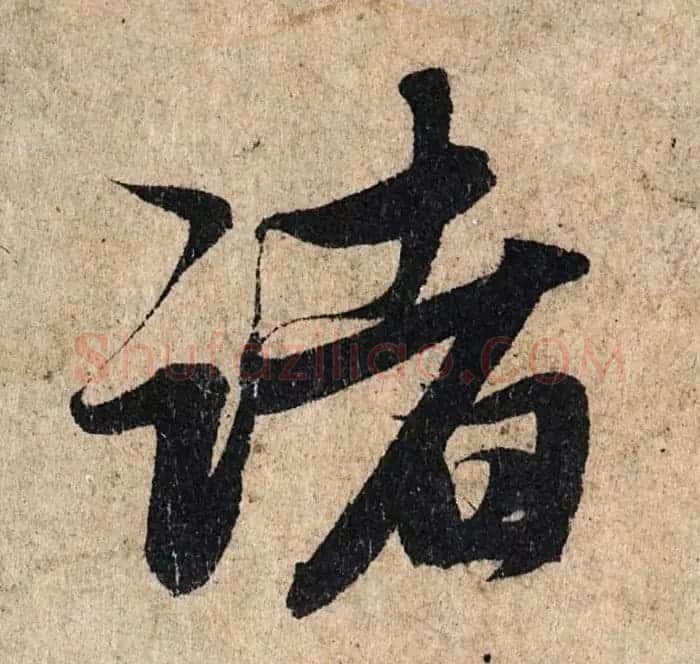 诸
Shufaziliao.COM